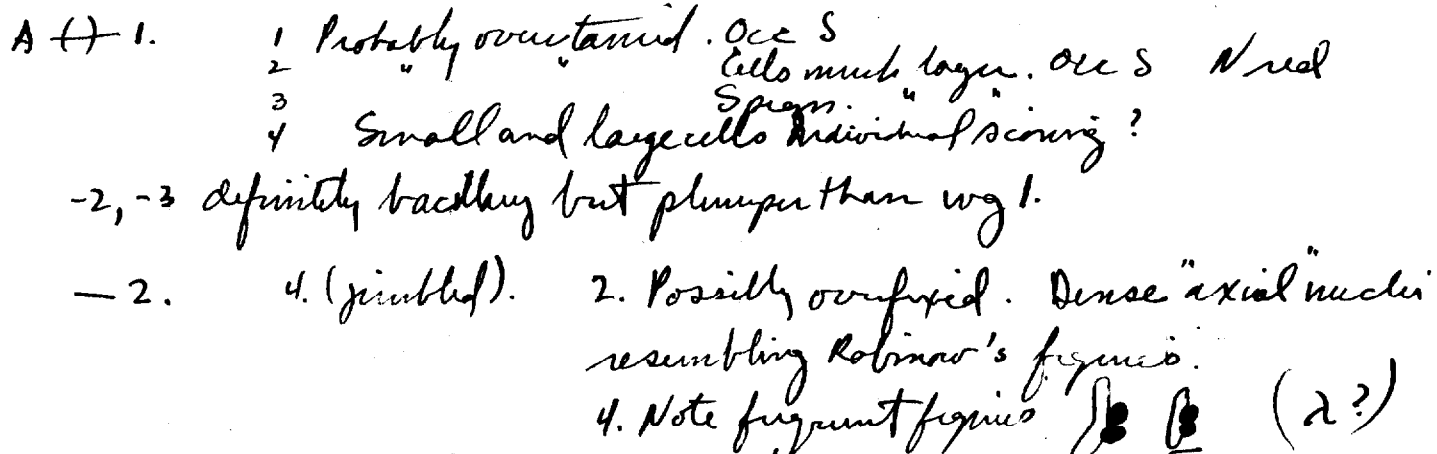 A (-) 1. 1 Probably overstained. Occ S
2 " " Cells much larger. Occ S N red
3 " "
4 Small and large cells Individual scoring?
-2, -3 definitely bacillary but plumper than wg 1.
— 2. 4. (jumbled). 2. Possibly overfixed. Dense "axial" nuclei
resembling Robinow's figures.
4. Note frequent figures (λ?)